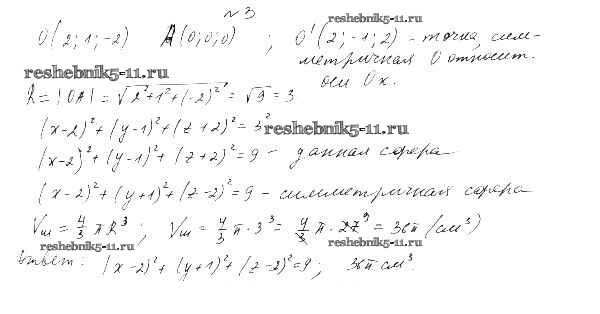 №3
reshebnik5-11.ru
O(2; 1; -2)   A(0; 0; 0) ; O'(2; -1; 2) - точка, сим-
метричная O относит.
оси Ox.
reshebnik5-11.ru
R = |OA| = √(2²+1²+(-2)²) = √9 = 3
(x-2)² + (y-1)² + (z+2)² = 3²
reshebnik5-11.ru
(x-2)² + (y-1)² + (z+2)² = 9 - данная сфера
(x-2)² + (y+1)² + (z-2)² = 9 - симметричная сфера
Vш = 4/3 πR³ ; Vш = 4/3 π · 3³ = 4/3 π · 27 9 = 36π (см³)
reshebnik5-11.ru reshebnik5-11.ru
Ответ: (x-2)² + (y+1)² + (z-2)² = 9 ; 36π см³.